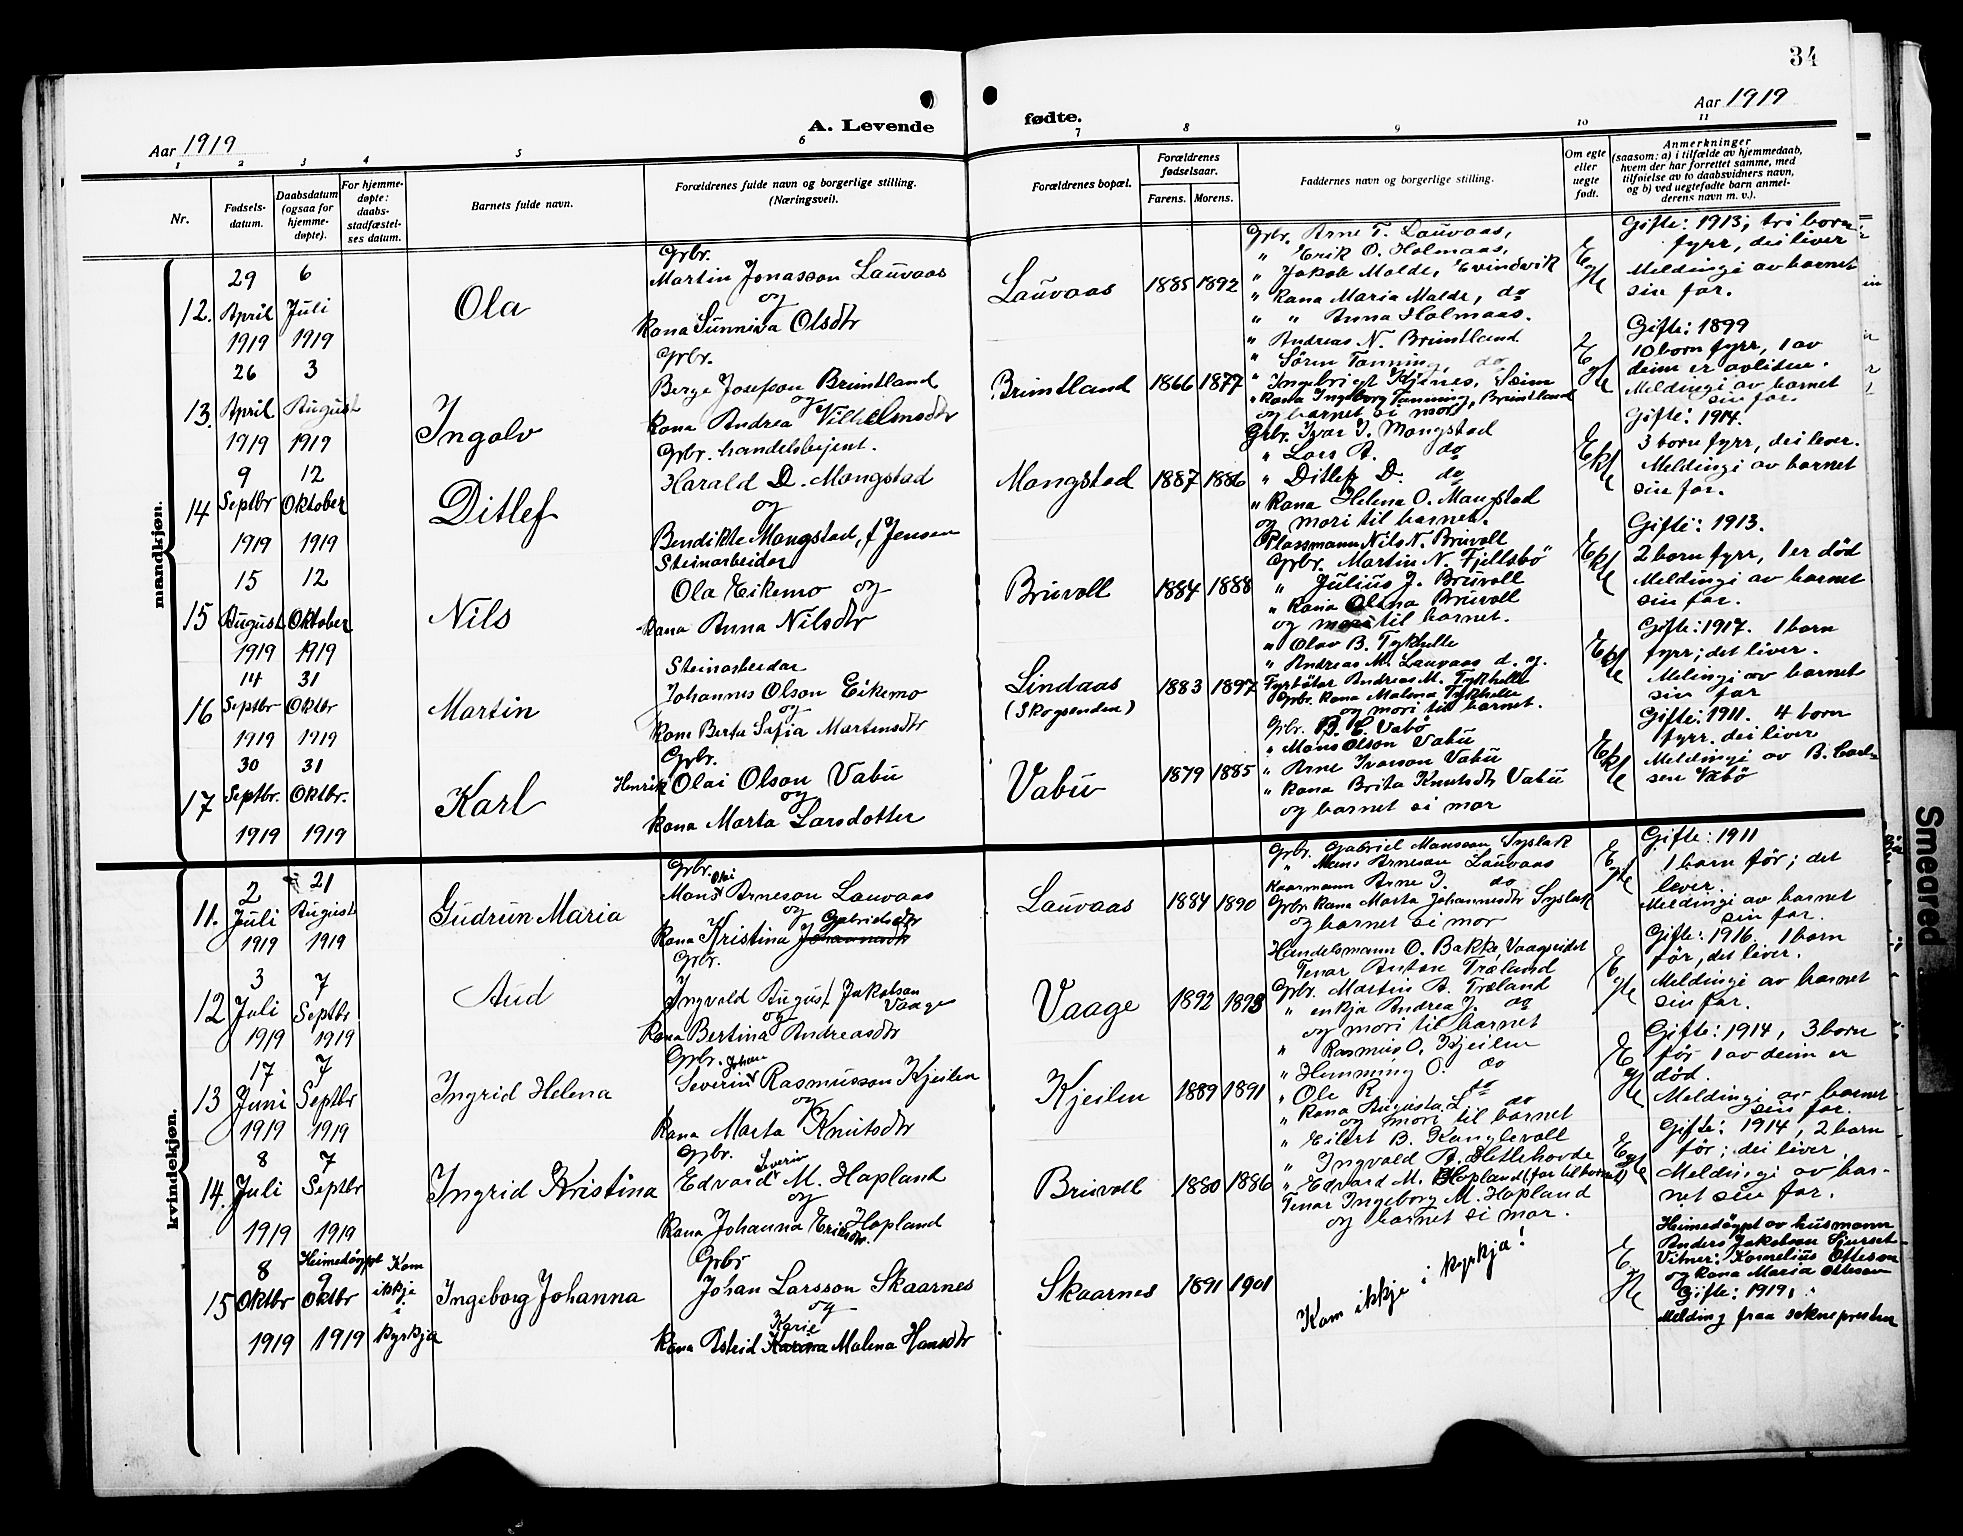 34
Aar 1919
A. Levende
fødte.
Aar 1919
1 2 3 4 5 6 7 8 9 10 11
Nr.
Fødsels-
datum.
Daabsdatum
(ogsaa for
hjemme-
døpte).
For hjemme-
døpte:
daabs-
stadfæstel-
ses datum.
Barnets fulde navn.
Forældrenes fulde navn og borgerlige stilling.
(Næringsvei).
Forældrenes bopæl.
Forældrenes
fødselsaar.
Farens. Morens.
Faddernes navn og borgerlige stilling.
Om egte
eller
uegte
født.
Anmerkninger
(saasom: a) i tilfælde av hjemmedaab,
hvem der har forrettet samme, med
tilføielse av to daabsvidners navn,
og b) ved uegtefødte barn anmel-
derens navn m. v.).
mandkjøn.
12.
29 April 1919
6 Juli 1919
Ola
Grbr.
Martin Jonasson Lauvaas
og
kona Sunniva Olsdtr
Lauvaas
1885 1892
Grbr. Arne T. Lauvaas,
" Erik O. Holmaas,
" Jakob Molde, Evindvik
" kona Maria Molde, do
" " Anna Holmaas.
Egte
Gifte: 1913; tri born
fyrr, dei liver
Meldingi av barnet
sin far.
13.
26 April 1919
3 August 1919
Ingolv
Grbr.
Berge Josefson Bruntland
og
kona Andrea Vilhelmsdtr
Bruntland
1866 1877
" Andreas N. Bruntland
" Søren Tanning, do
" Ingebrigt Kjenes, Seim
" kona Ingeborg Tanning, Bruntland
og barnet si mor
Egte
Gifte: 1899
10 born fyrr, 1 av
deim er avliten.
Meldingi av barnet
sin far.
14
9 Septbr 1919
12 Oktober 1919
Ditlef
Grbr. handelsbetjent.
Harald D. Mongstad
og
Bendikte Mongstad, f Jensen
Mongstad
1887 1886
Grbr. Ivar I. Mongstad
" Lars A. do
" Ditlef D. do
" kona Helena O. Mongstad
og mori til barnet.
Ekte
Gifte: 1914.
3 born fyrr, dei lever.
Meldingi av barnet
sin far.
15
15 August 1919
12 Oktober 1919
Nils
Steinarbeidar
Ola Eikemo og
kona Anna Nilsdtr
Bruvoll
1884 1888
Plassmann Nils N. Bruvoll
Grbr. Martin N. Fjellsbö
" Julius J. Bruvoll
" kona Olina Bruvoll
og mori til barnet.
Ekte
Gifte: 1913.
2 born fyrr, 1 er död
Meldingi av barnet
sin far.
16
14 Septbr 1919
31 Oktbr 1919
Martin
Steinarbeidar
Johannes Olson Eikemo
og
kona Berta Sofia Martensdtr
Lindaas
(Skogsenden)
1883 1897
" Olav B. Tykhelle
" Andreas M. Lauvaas d. y.
Fyrbötar Andreas M. Tykhelle
Grbr. kona Malena Tykhelle
og mori til barnet.
Ekte
Gifte: 1917. 1 born
fyrr; det liver.
Melingi av barnet
sin far
17
30 Septbr. 1919
31 Oktbr. 1919
Karl
Grbr.
Henrik Olai Olson Vabu
og
kona Marta Larsdotter
Vabu
1879 1885
Grbr. B. C. Vabö
" Mons Olson Vabu
" Arne Ivarson Vabu
" kona Brita Knutsdtr Vabu
og barnet si mor
Ekte
Gifte: 1911. 4 born
fyrr. dei liver
Meldingi av B. Carl-
sen Vabö
kvindekjøn.
11.
2 Juli 1919
21 August 1919
Gudrun Maria
Grbr.
Mons Olai Arneson Lauvaas
og
kona Kristina Gabrielsdtr Johannesdtr
Lauvaas
1884 1890
Grbr. Gabriel Monsson Syslak
" Mons Arneson Lauvaas
kaarmann Arne J. do
Grbr. kona Marta Johannesdtr Syslak
og barnet si mor
Egte
Gifte: 1911
1 born för; det
lever.
Meldingi av barnet
sin far.
12
3 Juli 1919
7 Septbr 1919
Aud
Grbr.
Ingvald August Jakobson
Vaage
og
kona Bertina Andreasdtr
Vaage
1892 1893
Handelsmann O. Bakke, Vaagseidet
Tenar Anton Træland
Grbr. Martin A. Træland
" enkja Andrea J. do
og mori til barnet
Egte
Gifte: 1916. 1 born
för, det liver.
Meldingi av barnet
sin far.
13
17 Juni 1919
7 Septbr 1919
Ingrid Helena
Grbr.
Severin Johan Rasmusson Kjeilen
og
kona Marta Knutsdtr
Kjeilen
1889 1891
" Rasmus O. Kjeilen
" Hemming O. do
" Ole R. do
" kona Augusta L. do
og mori til barnet
Egte
Gifte: 1914, 3 born
för 1 av deim er
död.
Meldingi av barnet
sin far.
14.
8 Juli 1919
7 Septbr 1919
Ingrid Kristina
Grbr.
Edvard Severin M. Hopland
og
kona Johanna Eriksdtr. Hopland
Bruvoll
1880 1886
" Eilert B. Kanglevoll
" Ingvald A. Hetlehovde
" Edvard M. Hopland (far til barnet)
Tenar Ingeborg M. Hopland
og barnet si mor.
Egte
Gifte: 1914, 2 born
för; dei liver.
Meldingi av bar-
net sin far.
15
8 Oktbr 1919
Heimedöypt
9 Oktbr 1919
Kom
ikkje
i
kyrkja
Ingeborg Johanna
Grbr
Johan Larsson Skaarnes
og
kona Astrid Karie Karina Malena Hansdtr
Skaarnes
1891 1901
Kom ikkje i kyrkja!
Egte
Heimedöypt av husmann
Anders Jakobson
Vitner: Kornelius Otteson
og kona Maria Otteson
Gifte: 1919.
Melding fraa soknepresten
Smeared